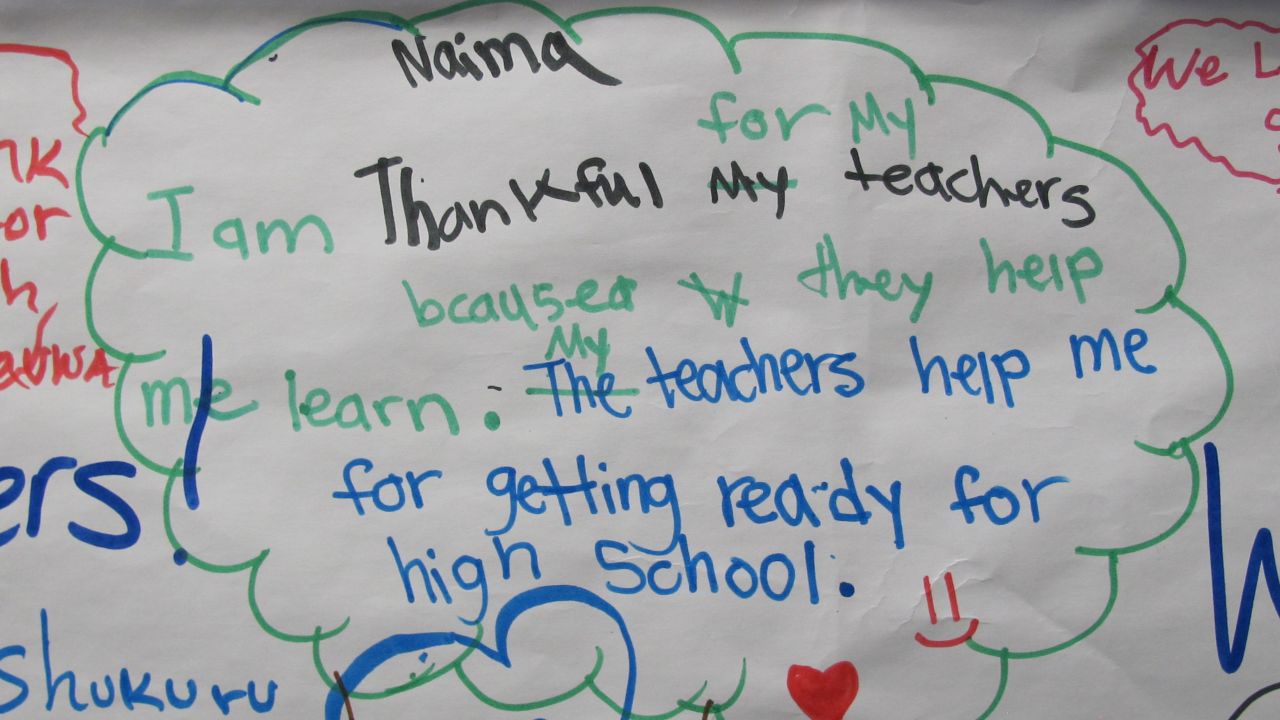 Naima
for My
I am Thankful My teachers
bcaused W they help
My
me learn. The teachers help me
for getting ready for
high School.
We L
nK
or
h
ers!
shukuru
W